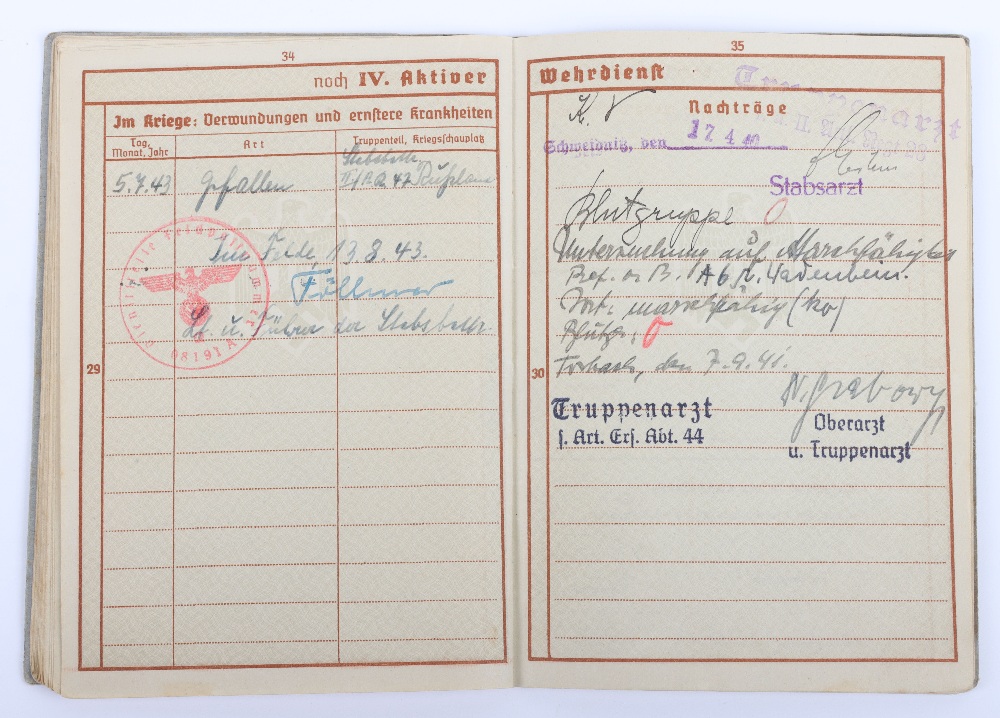 34
noch IV. Aktiver
Im Kriege: Verwundungen und ernstere Krankheiten
Tag, Monat, Jahr
Art
Truppenteil, Kriegsschauplatz
5.7.43
Gefallen
Stabsbattr.
Rußland
Im Felde, 13.8.43.
Föllmer
Lt. u. Führer der Stabsbattr.
08191 A
29
35
Wehrdienst
Nachträge
Truppenarzt
Schweidnitz, den 17 4 40
Stabsarzt
Blutgruppe O
Untersuchung auf Marschfähigkeit
Bef. n. B. A 6
marschfähig (kv)
O
Forbach, den 7.9.41.
30
Truppenarzt
s. Art. Ers. Abt. 44
Oberarzt
u. Truppenarzt